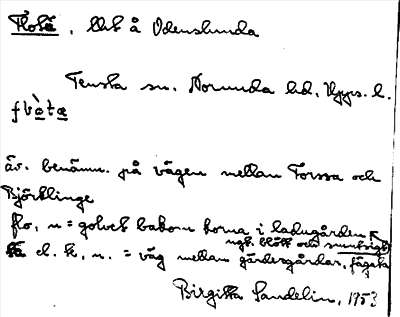 Flotå, llt å Odenslunda
Tensta sn. Norunda hd. Upps. l.
äv. benämn. på vägen mellan Torssa och
Björklinge
flo, n = golvet bakom korna i ladugården
ngt blött och smutsigt
el. k, n. = väg mellan gärdesgårdar, fägata
Birgitta Sandelin, 1953